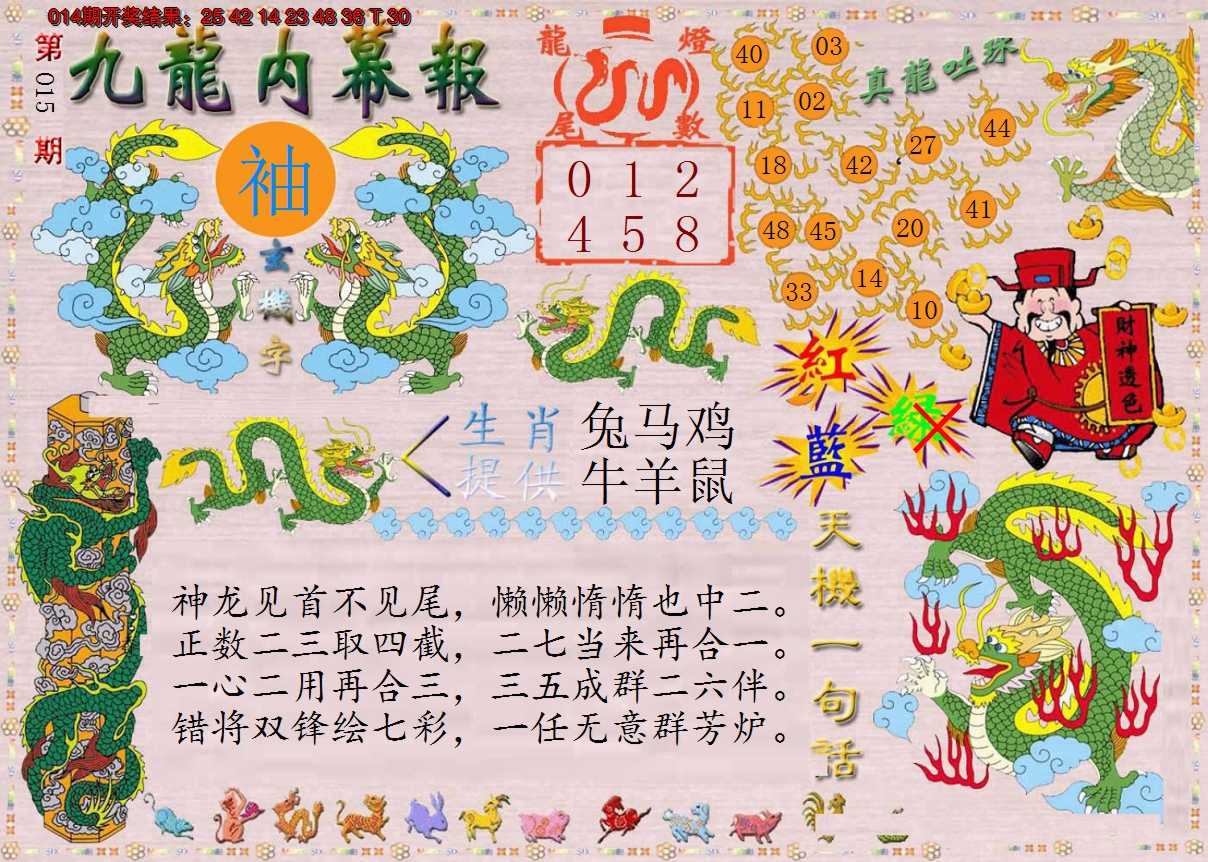 014期开奖结果：25 42 14 23 48 36 T 30
第015期
九龍内幕報
龍燈尾數
真龍吐珠
袖
玄機字
0 1 2
4 5 8
40 03
11 02
27 44
18 42
48 45 20 41
33 14 10
財神透色
紅
綠
藍
生肖 兔马鸡
提供 牛羊鼠
天機一句话
神龙见首不见尾，懒懒惰惰也中二。
正数二三取四截，二七当来再合一。
一心二用再合三，三五成群二六伴。
错将双锋绘七彩，一任无意群芳炉。